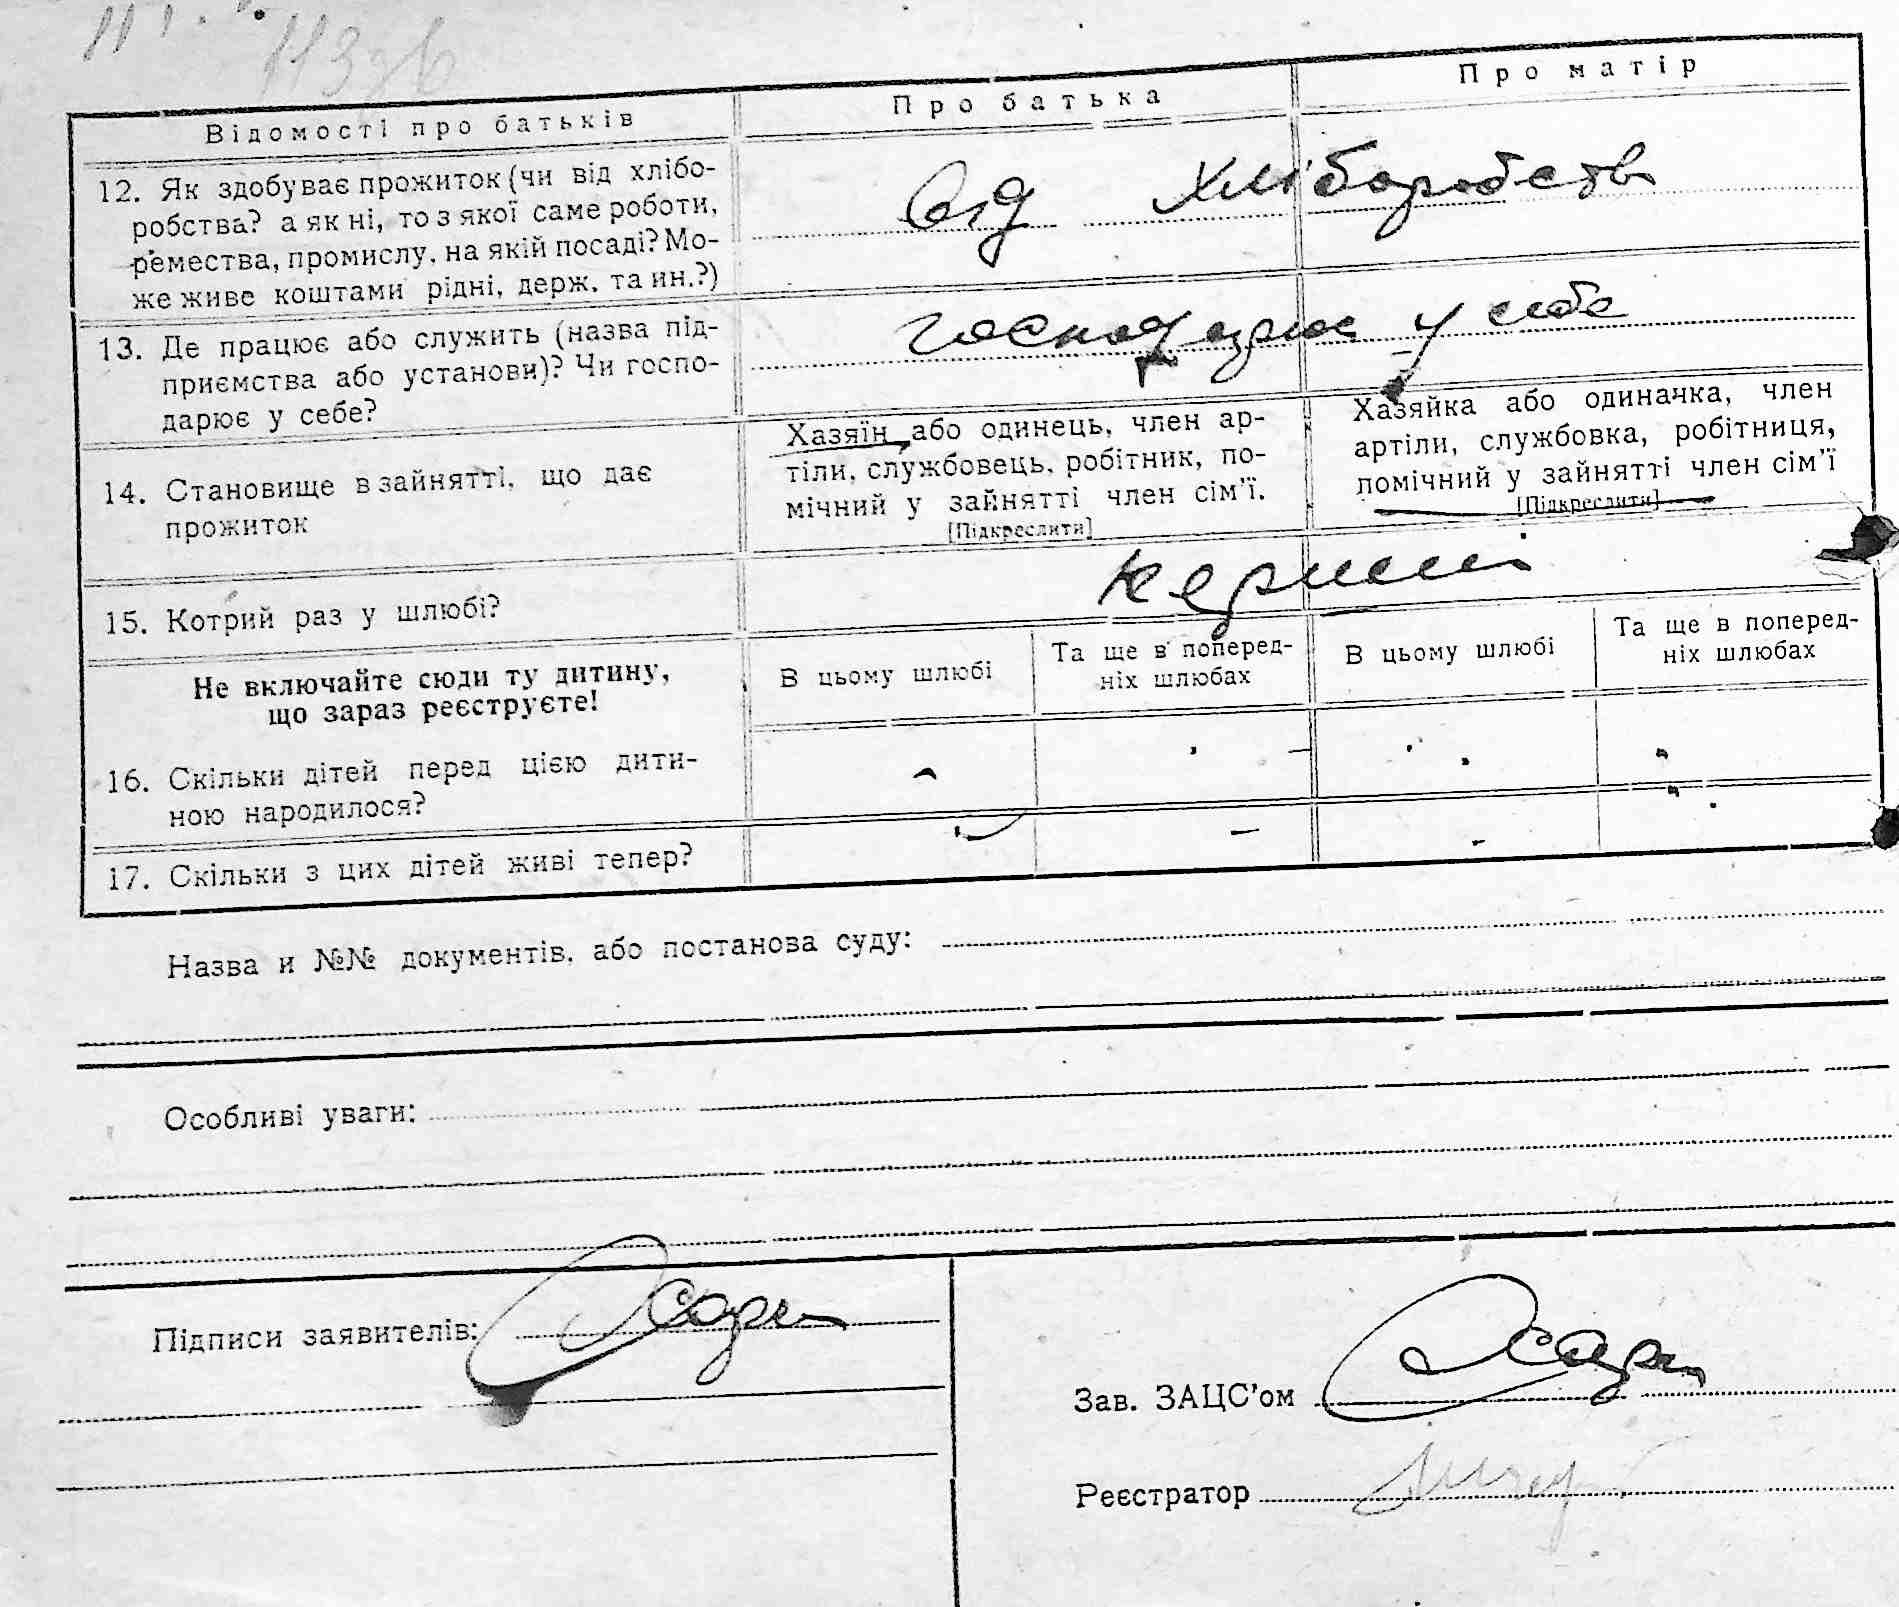 113зв
Відомості про батьків
Про батька
Про матір
12. Як здобуває прожиток (чи від хлібо-
робства? а як ні, то з якої саме роботи,
ремества, промислу, на якій посаді? Мо-
же живе коштами рідні, держ. та ин.?)
від хліборобств
13. Де працює або служить (назва під-
приємства або установи)? Чи госпо-
дарює у себе?
господарює у себе
14. Становище в зайнятті, що дає
прожиток
Хазяїн або одинець, член ар-
тіли, службовець, робітник, по-
мічний у зайнятті член сім'ї.
[Підкреслити]
Хазяйка або одиначка, член
артіли, службовка, робітниця,
помічний у зайнятті член сім'ї
[Підкреслити]
15. Котрий раз у шлюбі?
перший
Не включайте сюди ту дитину,
що зараз реєструєте!
В цьому шлюбі
Та ще в поперед-
ніх шлюбах
В цьому шлюбі
Та ще в поперед-
ніх шлюбах
16. Скільки дітей перед цією дити-
ною народилося?
17. Скільки з цих дітей живі тепер?
Назва и №№ документів, або постанова суду:
Особливі уваги:
Підписи заявителів:
Зав. ЗАЦС'ом
Реєстратор